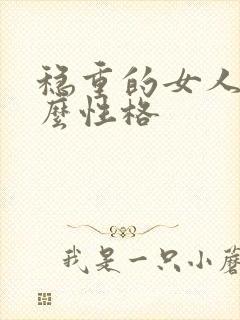 稳重的女人
麽性格
我是一只小蘑